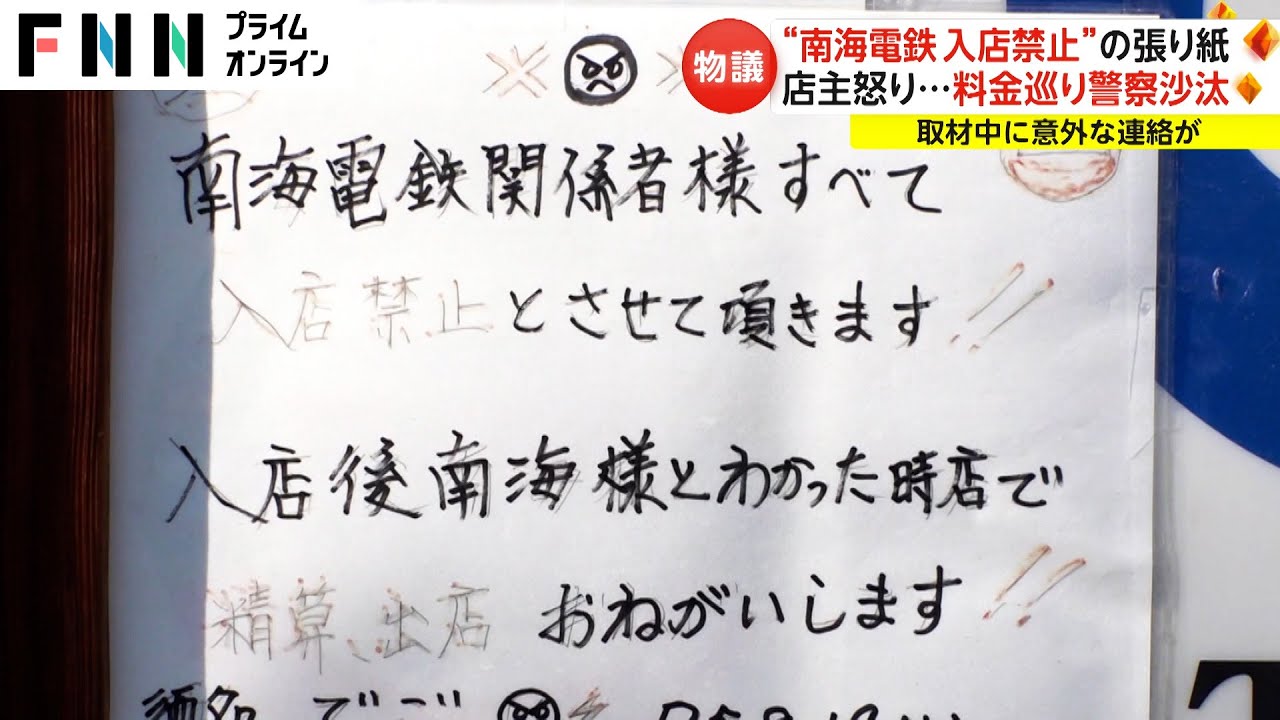 FNN プライム
オンライン
物議
“南海電鉄 入店禁止”の張り紙
店主怒り…料金巡り警察沙汰
取材中に意外な連絡が
南海電鉄関係者様すべて
入店禁止とさせて頂きます!!
入店後南海様とわかった時店で
精算、出店 おねがいします!!